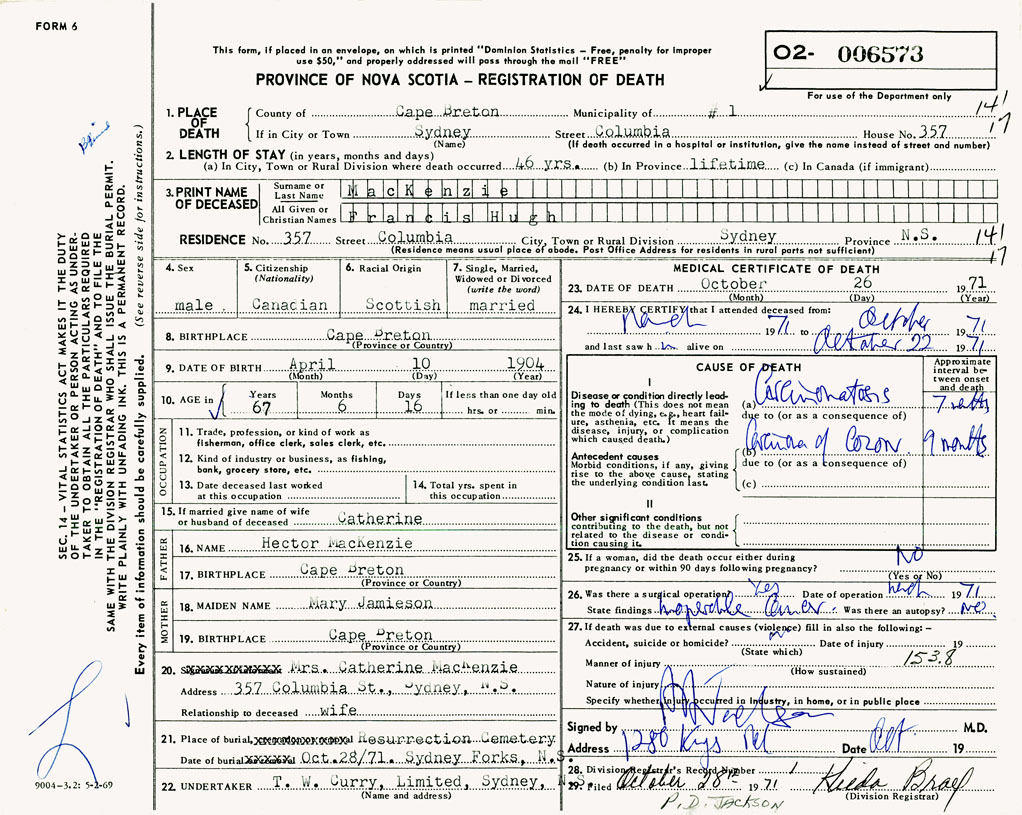 FORM 6
This form, if placed in an envelope, on which is printed "Dominion Statistics – Free, penalty for improper
use $50," and properly addressed will pass through the mail "FREE"
PROVINCE OF NOVA SCOTIA – REGISTRATION OF DEATH
02- 006573
For use of the Department only
1. PLACE OF DEATH
County of Cape Breton Municipality of # 1
If in City or Town Sydney Street Columbia House No. 357
(Name) (If death occurred in a hospital or institution, give the name instead of street and number)
141
17
2. LENGTH OF STAY (in years, months and days)
(a) In City, Town or Rural Division where death occurred 46 yrs. (b) In Province lifetime (c) In Canada (if immigrant)
3. PRINT NAME OF DECEASED
Surname or Last Name MacKenzie
All Given or Christian Names Francis Hugh
RESIDENCE No. 357 Street Columbia City, Town or Rural Division Sydney Province N.S.
(Residence means usual place of abode. Post Office Address for residents in rural parts not sufficient)
141
17
4. Sex
male
5. Citizenship
(Nationality)
Canadian
6. Racial Origin
Scottish
7. Single, Married,
Widowed or Divorced
(write the word)
married
8. BIRTHPLACE Cape Breton
(Province or Country)
9. DATE OF BIRTH April 10 1904
(Month) (Day) (Year)
10. AGE in Years Months Days If less than one day old
67 6 16 hrs. or min.
OCCUPATION
11. Trade, profession, or kind of work as
fisherman, office clerk, sales clerk, etc.
12. Kind of industry or business, as fishing,
bank, grocery store, etc.
13. Date deceased last worked
at this occupation
14. Total yrs. spent in
this occupation
15. If married give name of wife
or husband of deceased Catherine
FATHER
16. NAME Hector MacKenzie
17. BIRTHPLACE Cape Breton
(Province or Country)
MOTHER
18. MAIDEN NAME Mary Jamieson
19. BIRTHPLACE Cape Breton
(Province or Country)
20. Mrs. Catherine MacKenzie
Address 357 Columbia St., Sydney, N.S.
Relationship to deceased wife
21. Place of burial, Resurrection Cemetery
Date of burial Oct.28/71. Sydney Forks, N.S.
22. UNDERTAKER T. W. Curry, Limited, Sydney, N.S.
(Name and address)
MEDICAL CERTIFICATE OF DEATH
23. DATE OF DEATH October 26 1971
(Month) (Day) (Year)
24. I HEREBY CERTIFY that I attended deceased from:
March 1971 to October 1971
and last saw him alive on October 22 1971
CAUSE OF DEATH
Approximate
interval be-
tween onset
and death
I
Disease or condition directly lead-
ing to death (This does not mean
the mode of dying, e.g., heart fail-
ure, asthenia, etc. It means the
disease, injury, or complication
which caused death.)
(a) Carcinomatosis
due to (or as a consequence of)
Antecedent causes
Morbid conditions, if any, giving
rise to the above cause, stating
the underlying condition last.
(b) Carcinoma of Colon 9 months
due to (or as a consequence of)
(c)
II
Other significant conditions
contributing to the death, but not
related to the disease or condi-
tion causing it.
25. If a woman, did the death occur either during
pregnancy or within 90 days following pregnancy? No
(Yes or No)
26. Was there a surgical operation? Yes Date of operation March 1971
State findings Inoperable Cancer Was there an autopsy? No
27. If death was due to external causes (violence) fill in also the following: –
Accident, suicide or homicide? Date of injury 19
(State which)
Manner of injury 153.8
(How sustained)
Nature of injury
Specify whether injury occurred in industry, in home, or in public place
Signed by M.D.
Address 1280 Kings Rd Date Oct 19
28. Division Registrar's Record Number
29. Filed October 28th 1971 Hilda
(Division Registrar)
P.D. JACKSON
SEC. 14 – VITAL STATISTICS ACT MAKES IT THE DUTY
OF THE UNDERTAKER OR PERSON ACTING AS UNDER-
TAKER TO OBTAIN ALL THE PARTICULARS REQUIRED
IN THE "REGISTRATION OF DEATH" AND TO FILE THE
SAME WITH THE DIVISION REGISTRAR WHO SHALL ISSUE THE BURIAL PERMIT.
WRITE PLAINLY WITH UNFADING INK. THIS IS A PERMANENT RECORD.
Every item of information should be carefully supplied. (See reverse side for instructions.)
9004-3.2: 5-2-69